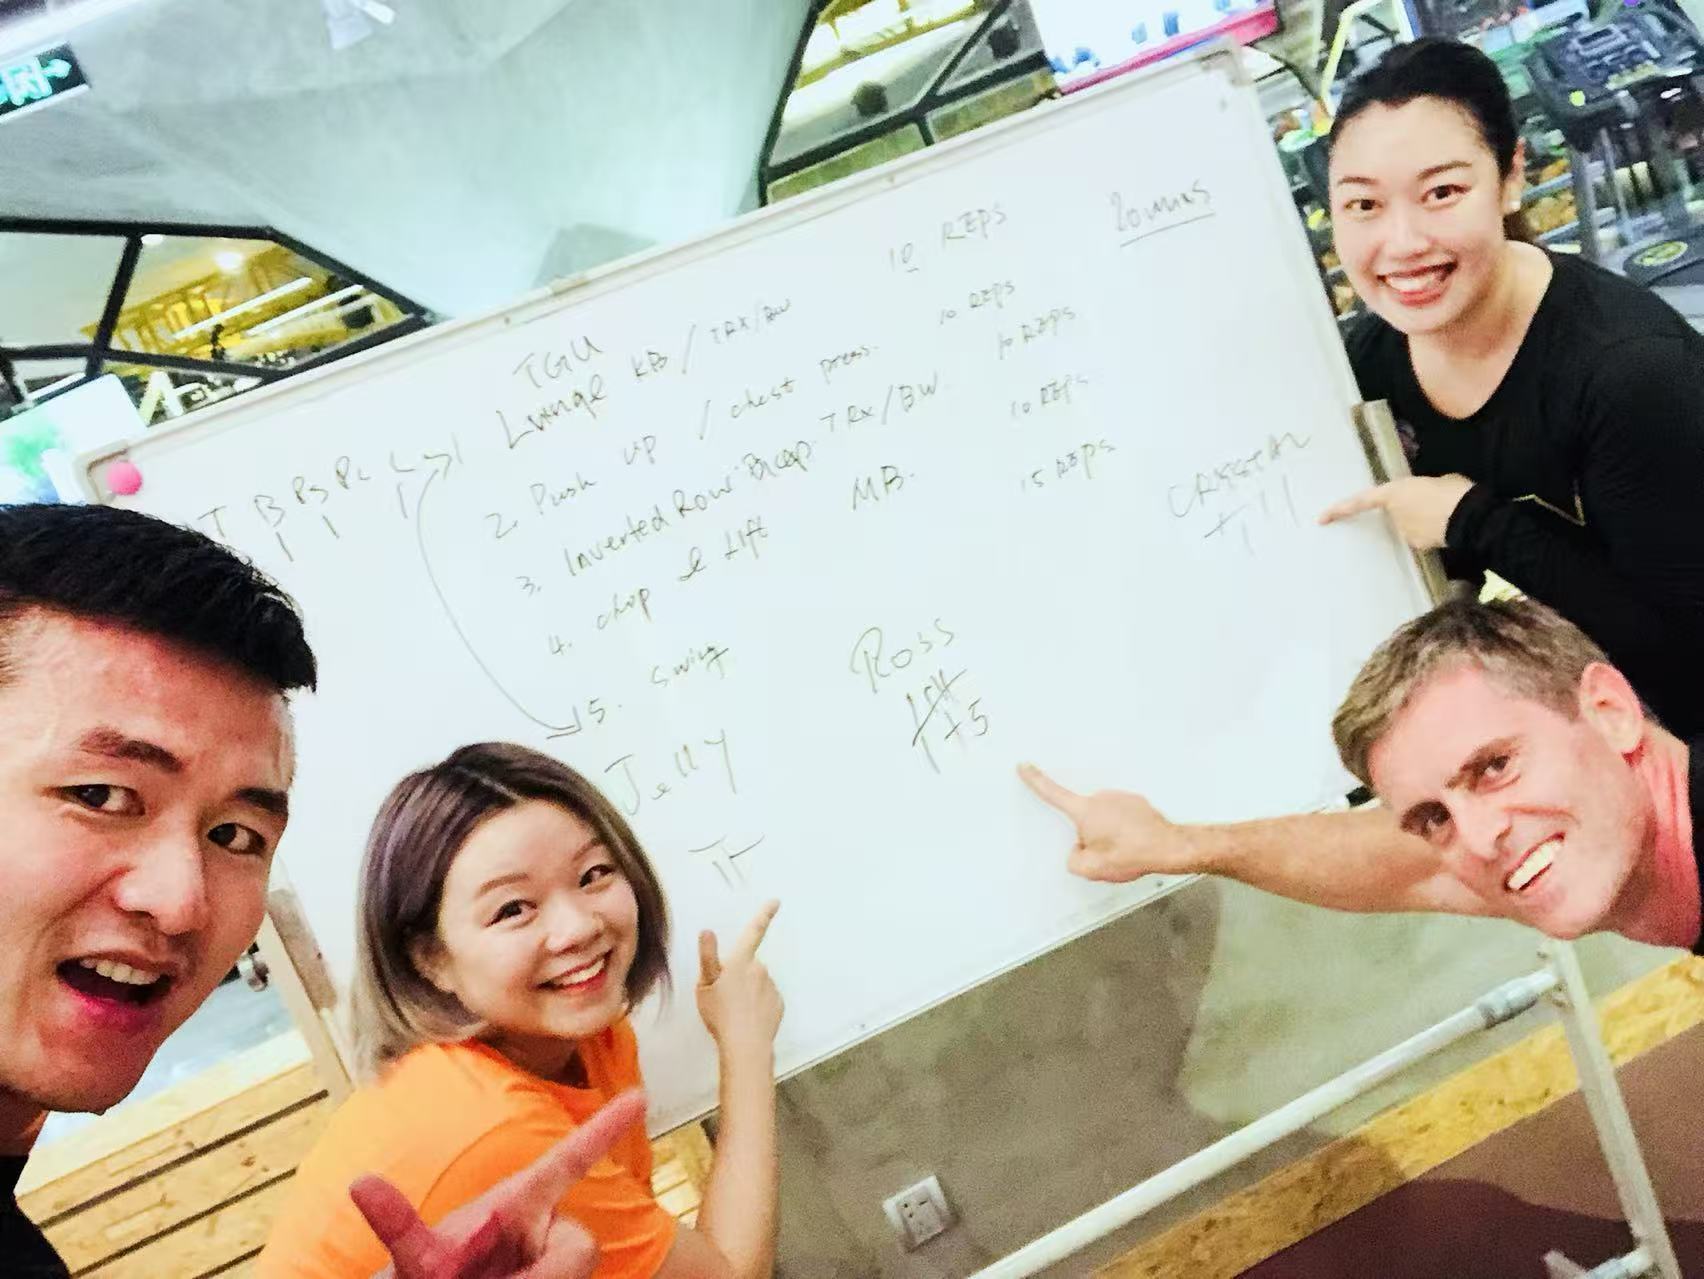 TGU
10 REPS
20 mins
Lunge KB / TRX/BW
2. Push up / chest press. 10 REPS
3. Inverted Row. Bicep. TRX/BW. 10 REPS
4. chop & Lift MB. 10 REPS
5. swing 15 REPS
T B Ps PL
Jelly
Ross
+5